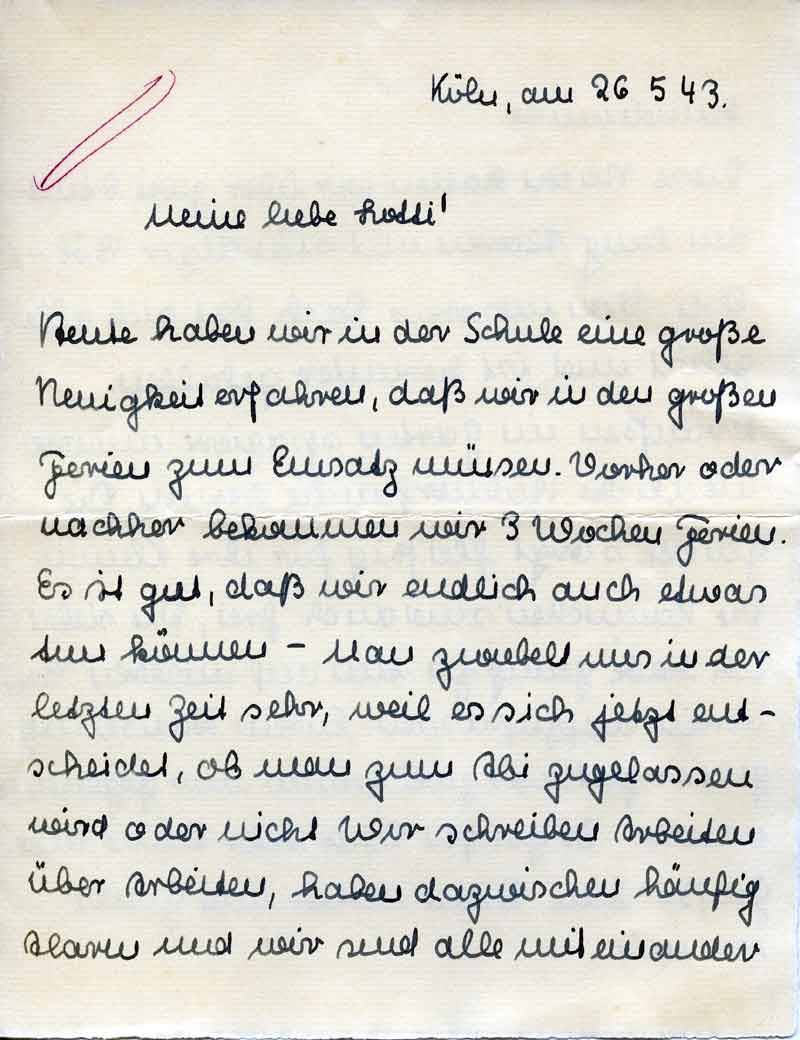 Köln, am 26 5 43.
Meine liebe Lotti!
Heute haben wir in der Schule eine große
Neuigkeit erfahren, daß wir in den großen
Ferien zum Einsatz müsen. Vorher oder
nachher bekommen wir 3 Wochen Ferien.
Es ist gut, daß wir endlich auch etwas
tun können – Man zwiebelt uns in der
letzten Zeit sehr, weil es sich jetzt ent-
scheidet, ob man zum Abi zugelassen
wird oder nicht Wir schreiben Arbeiten
über Arbeiten, haben dazwischen häufig
Alarm und wir sind alle miteinander